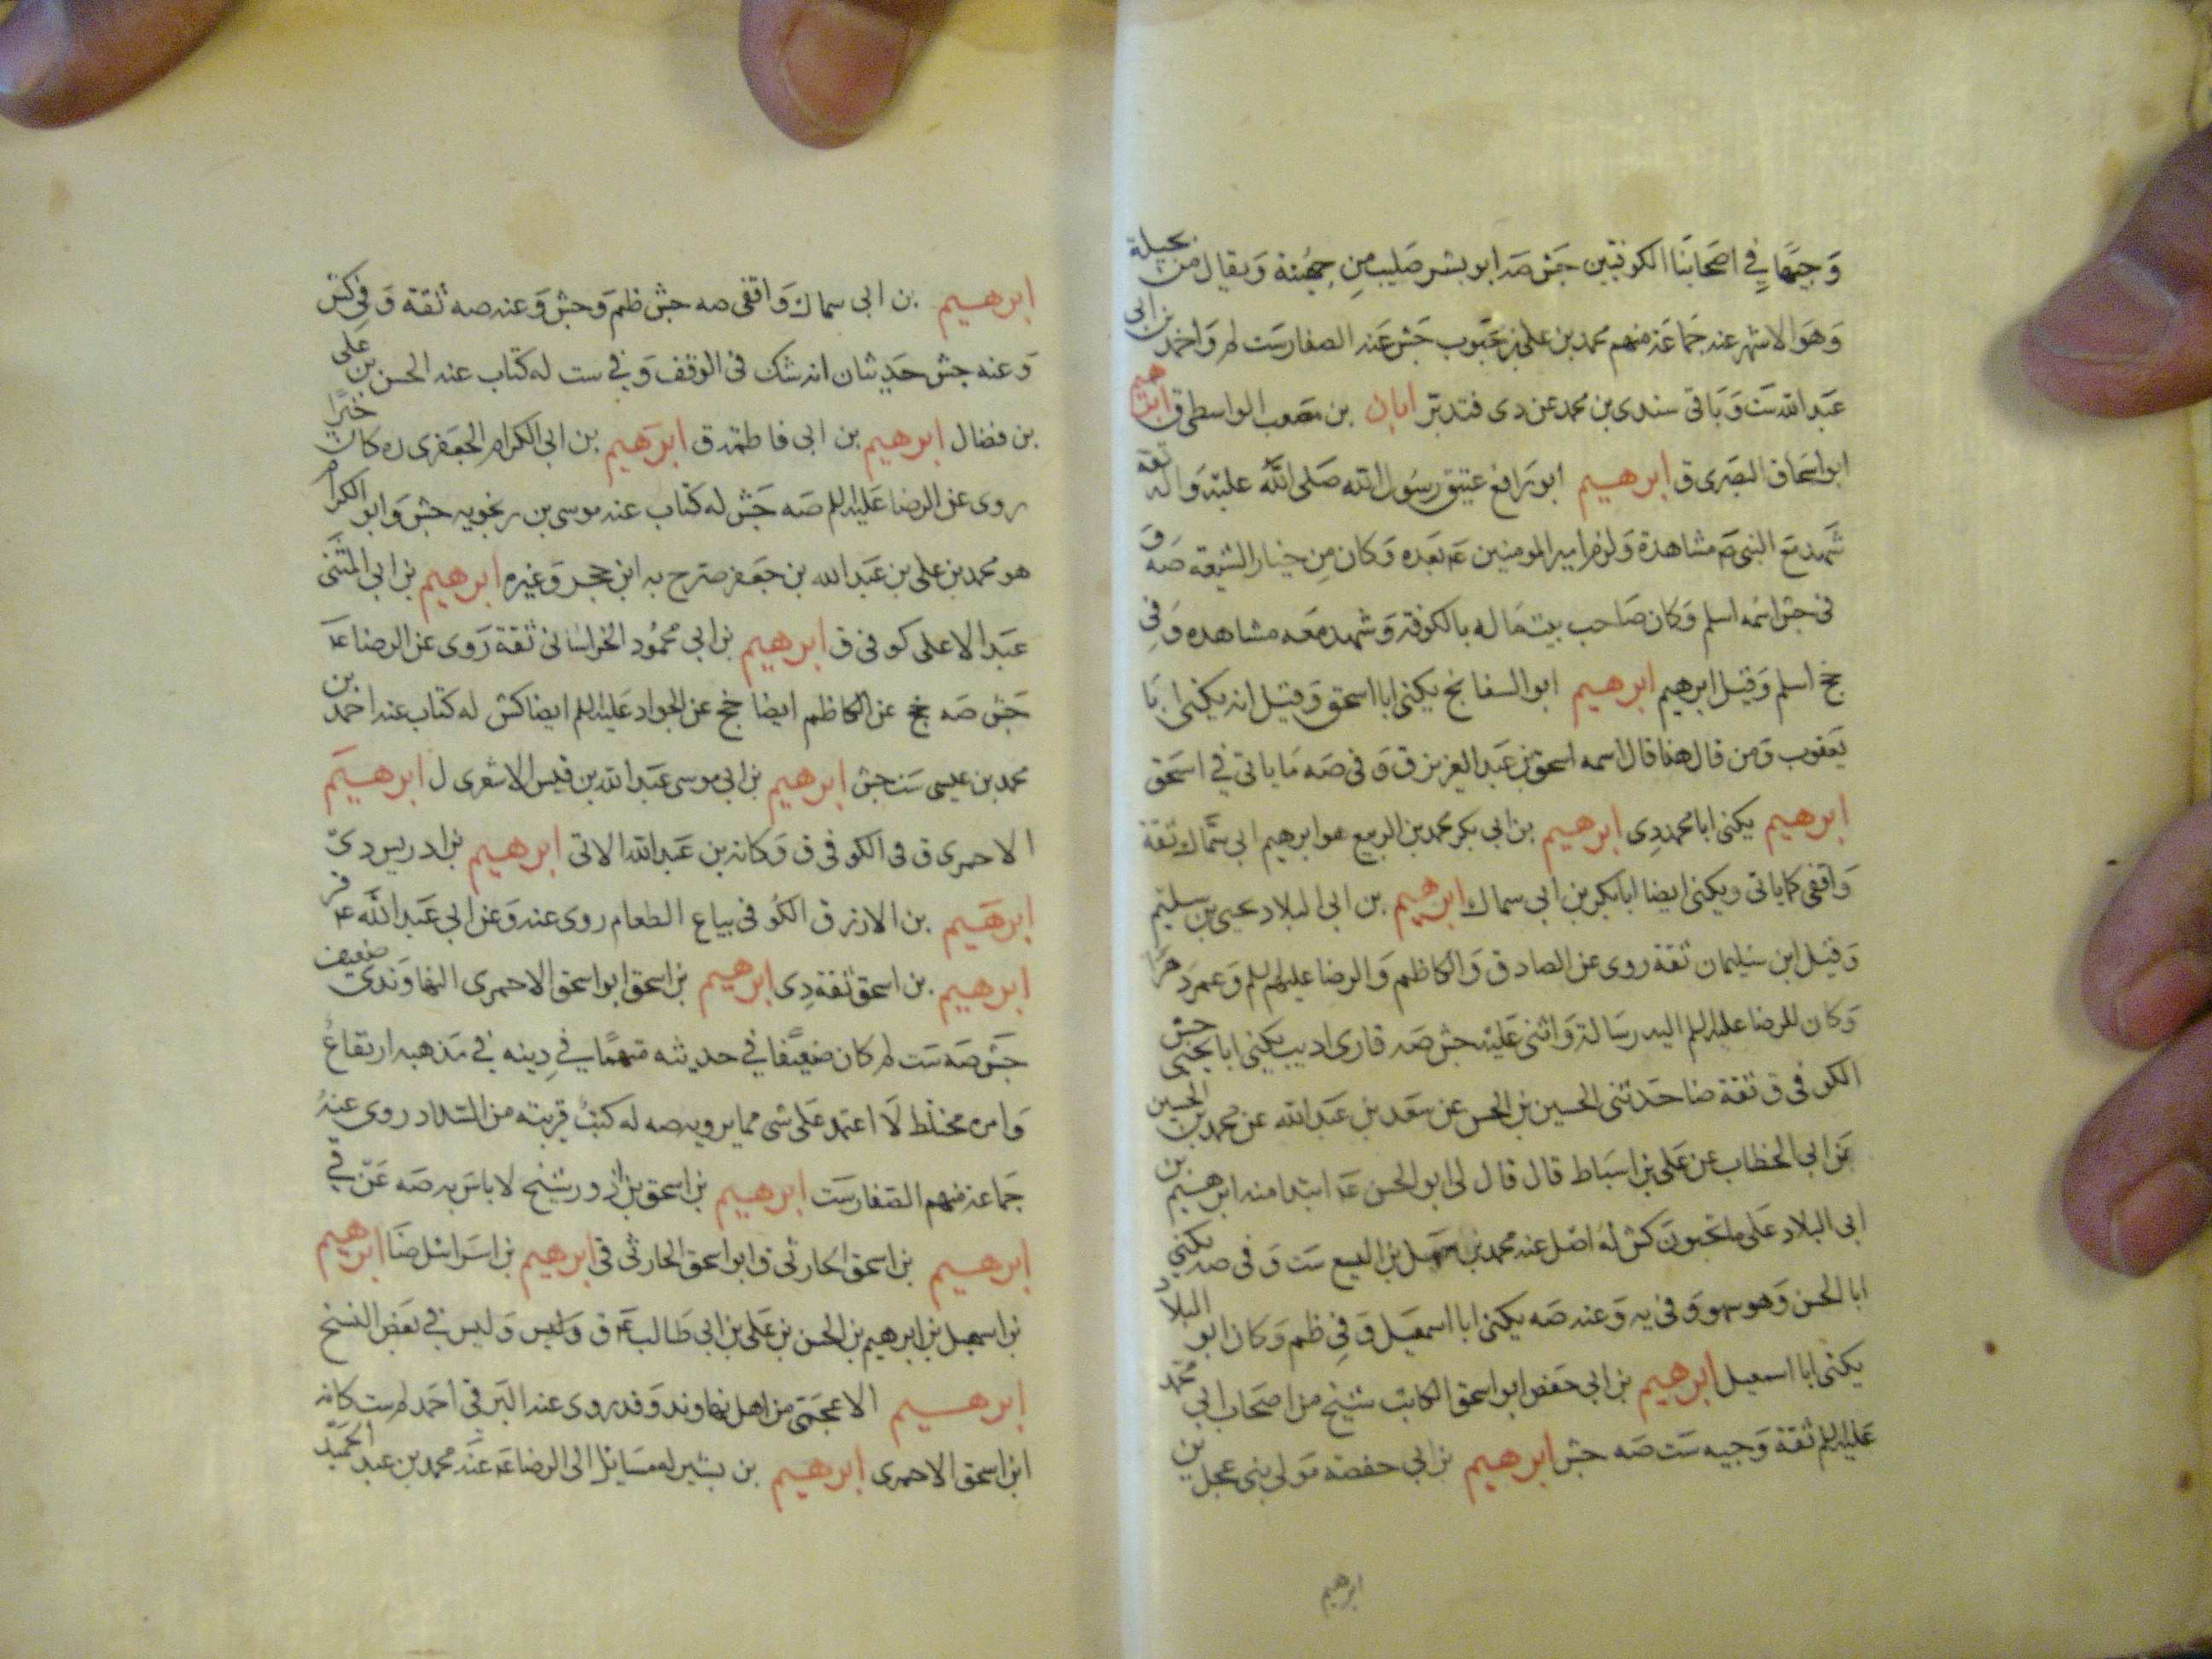 وجيها في اصحابنا الكوفيين جش صه ابو بشر صليب من جهينة ويقال من بجيلة
وهو الاشهر عنه جماعة منهم محمد بن علي بن محبوب جش عنه الصفار ست لم واحمد بن ابى
عبد الله ست وباقى سندى بن محمد عن دى فتدبّر ابان بن مصعب الواسطى ق ابرهيم
ابو اسحاق البصرى ق ابرهيم ابو رافع عتيق رسول الله صلى الله عليه واله ثقة
شهد مع النبى ص مشاهدة ولزم امير المومنين ع بعده وكان من خيار الشيعة صه و
فى جش اسمه اسلم وكان صاحب بيت ماله بالكوفة وشهد معه مشاهده وفى
جخ اسلم وقيل ابرهيم ابرهيم ابو السفاتج يكنى ابا اسحق وقيل انه يكنى ابا
يعقوب ومن قال هذا قال اسمه اسحق بن عبد العزيز ق وفى صه ما ياتى في اسحق
ابرهيم يكنى ابا محمد دى ابرهيم بن ابى بكر محمد بن الربيع هو ابرهيم ابى سمّاك ثقة
واقفى كما ياتى ويكنى ايضا ابا بكر بن ابى سماك ابرهيم بن ابى البلاد يحيى بن سليم
وقيل ابن سليمان ثقة روى عن الصادق والكاظم والرضا عليهم لم وعمر دهرا
وكان للرضا عليه لم اليه رسالة واثنى عليه جش صه قارى اديب يكنى ابا يحيى جش
الكوفى ق ثقة ضا حدثنى الحسين بن الحسن عن سعد بن عبد الله عن محمد بن الحسين
عن ابى الخطاب عن على بن اسباط قال قال لى ابو الحسن ع ابتدا منه ابرهيم بن
ابى البلاد على ما تحبون كش له اصل عنه محمد بن سهل بن اليسع ست وفى صه يكنى
ابا الحسن وهو سهو وفى يه وعنه صه يكنى ابا اسمعيل وفى ظم وكان ابو البلاد
يكنى ابا اسمعيل ابرهيم بن ابى حفص ابو اسحق الكاتب شيخ من اصحاب ابى محمد
عليه لم ثقة وجيه ست صه جش ابرهيم بن ابى حفصة مولى بنى عجل ين
ابرهيم
ابرهيم بن ابى سماك واقفى صه جش ظم وجش وعنه صه ثقة وفى كش
وعنه جش حديثان انه شك فى الوقف وفى ست له كتاب عنه الحسن بن على
بن فضال ابرهيم بن ابى فاطمة ق ابرهيم بن ابى الكرام الجعفرى ره كان خيّرا
روى عن الرضا عليه لم صه جش له كتاب عنه موسى بن رنجويه جش وابو الكرام
هو محمد بن على بن عبد الله بن جعفر صرح به ابن حجر وغيره ابرهيم بن ابى المثنى
عبد الاعلى كوفى ق ابرهيم بن ابى محمود الخراسانى ثقة روى عن الرضا ع
جش صه جخ عن الكاظم ايضا جخ عن الجواد عليه لم ايضا كش له كتاب عنه احمد بن
محمد بن عيسى ست جش ابرهيم بن ابى موسى عبد الله بن قيس الاشعرى ل ابرهيم
الاحمرى ق قى الكوفى ق وكانه بن عبد الله الاتى ابرهيم بن ادريس دى
ابرهيم بن الازرق الكوفى بياع الطعام روى عنه وعن ابى عبد الله ع قر
ابرهيم بن اسحق ثقة دى ابرهيم بن اسحق ابو اسحق الاحمرى النهاوندى ضعيف
جش صه ست لم كان ضعيفا في حديثه متهما في دينه في مذهبه ارتفاع
وامره مختلط لا اعتمد على شى مما يرويه صه له كتب قريبة من السداد روى عنه
جماعة منهم الصفار ست ابرهيم بن اسحق بن ازور شيخ لا باس به صه عن قى
ابرهيم بن اسحق الحارثى ق ابو اسحق الحارثى قى ابرهيم بن اسرائيل ضا ابرهيم
بن اسمعيل بن ابرهيم بن الحسن بن على بن ابى طالب ع ق وليس وليس في بعض النسخ
ابرهيم الاعجمى من اهل نهاوند وقد روى عنه البرقى احمد لم ست كانه
ابن اسحق الاحمرى ابرهيم بن بشير له مسائل الى الرضا ع عنه محمد بن عبد الحميد